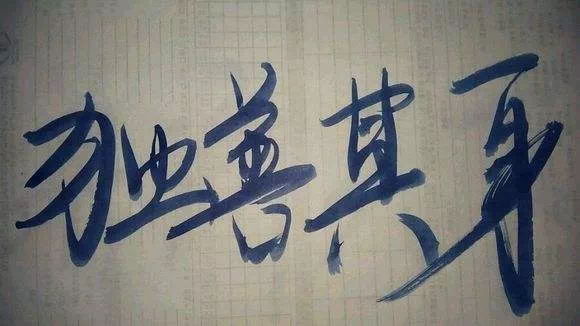 独善其身